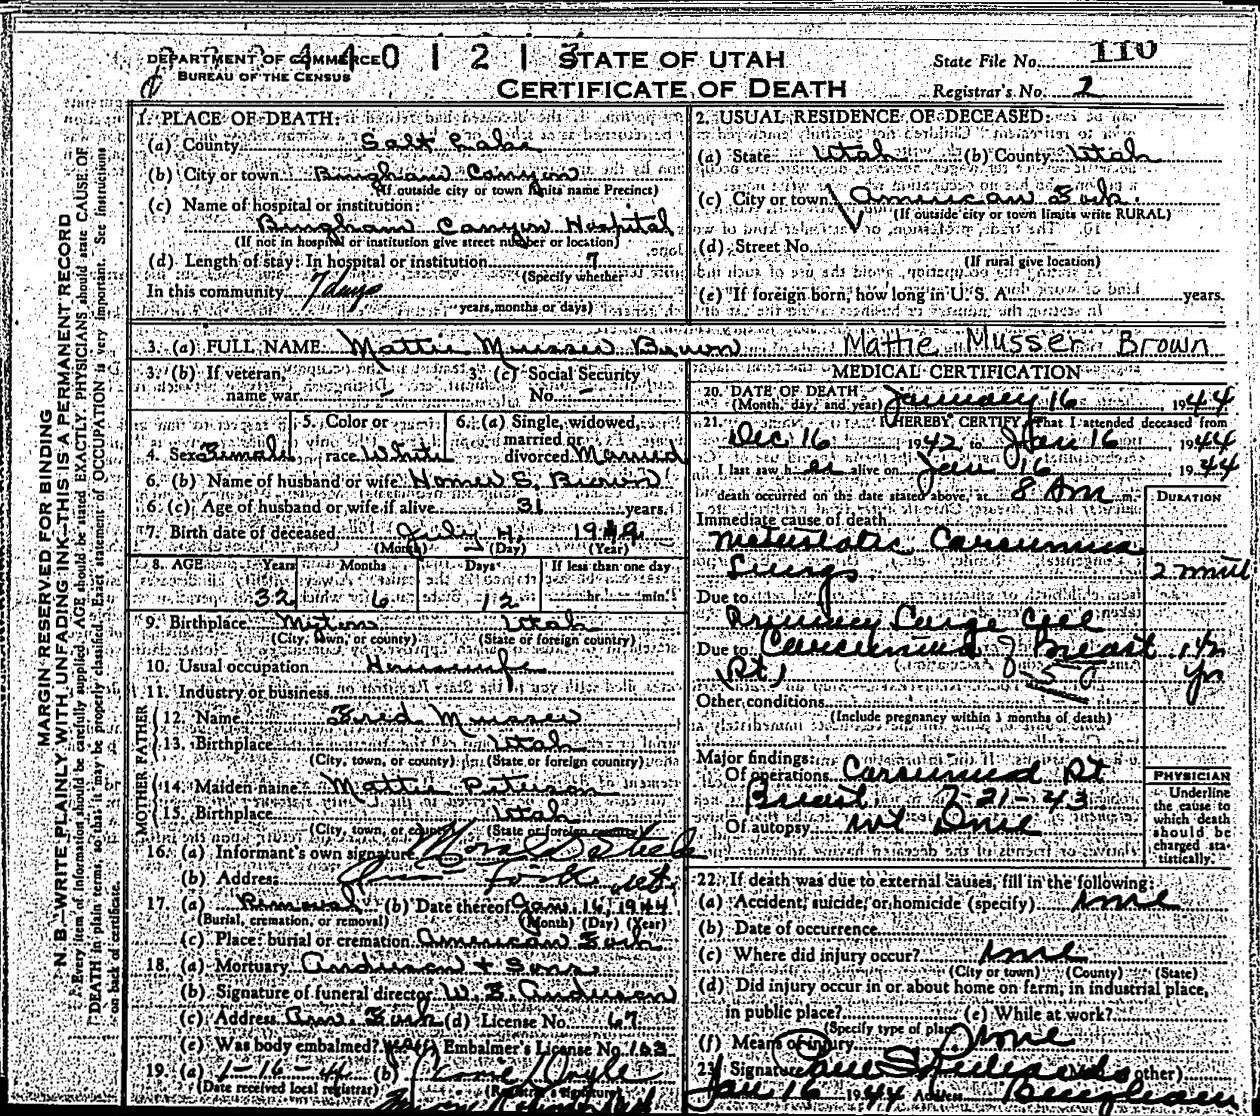 DEPARTMENT OF COMMERCE
BUREAU OF THE CENSUS
440 1 2 1 3
STATE OF UTAH
CERTIFICATE OF DEATH
State File No. 110
Registrar's No. 2
MARGIN RESERVED FOR BINDING
N. B.—WRITE PLAINLY WITH UNFADING INK—THIS IS A PERMANENT RECORD
Every item of information should be carefully supplied. AGE should be stated EXACTLY. PHYSICIANS should state CAUSE OF
DEATH in plain terms, so that it may be properly classified. Exact statement of OCCUPATION is very important. See instructions
on back of certificate.
1. PLACE OF DEATH:
(a) County Salt Lake
(b) City or town Bingham Canyon
(If outside city or town limits name Precinct)
(c) Name of hospital or institution:
Bingham Canyon Hospital
(If not in hospital or institution give street number or location)
(d) Length of stay: In hospital or institution 7
(Specify whether
In this community 7 days
years, months or days)
2. USUAL RESIDENCE OF DECEASED:
(a) State Utah (b) County Utah
(c) City or town American Fork
(If outside city or town limits write RURAL)
(d) Street No.
(If rural give location)
(e) If foreign born, how long in U. S. A. years.
3. (a) FULL NAME Mattie Musser Brown Mattie Musser Brown
3. (b) If veteran, name war - 3 (c) Social Security No. -
4. Sex Female 5. Color or race White 6. (a) Single, widowed, married or divorced Married
6. (b) Name of husband or wife Homer S. Brown
6. (c) Age of husband or wife if alive 31 years.
7. Birth date of deceased July 4, 19
(Month) (Day) (Year)
8. AGE Years 32 Months 6 Days 12 If less than one day hr. min.
9. Birthplace Utah
(City, town, or county) (State or foreign country)
10. Usual occupation Housewife
11. Industry or business
FATHER
12. Name Fred Musser
13. Birthplace Utah
(City, town, or county) (State or foreign country)
MOTHER
14. Maiden name Mattie Peterson
15. Birthplace Utah
(City, town, or county) (State or foreign country)
16. (a) Informant's own signature
(b) Address Fork Ut.
17. (a) Removal (b) Date thereof Jan 16, 1944
(Burial, cremation, or removal) (Month) (Day) (Year)
(c) Place: burial or cremation American Fork
18. (a) Mortuary Anderson + Sons
(b) Signature of funeral director W. E. Anderson
(c) Address Am. Fork (d) License No. 67
(e) Was body embalmed? Embalmer's License No. 163
19. (a) 1-16-44 (b) Doyle
(Date received local registrar) (Registrar's signature)
MEDICAL CERTIFICATION
20. DATE OF DEATH January 16, 1944
(Month, day, and year)
21. I HEREBY CERTIFY, That I attended deceased from
Dec 16 1942 to Jan 16 1944
I last saw her alive on Jan 16 1944
death occurred on the date stated above, at 8 Am m.
DURATION
Immediate cause of death
Metastatic Carcinoma
Lungs 2 mnth
Due to
Primary Large Cell
Due to Carcinoma of Breast
(Rt) yr
50
Other conditions
(Include pregnancy within 3 months of death)
Major findings:
Of operations Carcinoma Rt
Breast 7-21-43
Of autopsy not Done
PHYSICIAN
Underline
the cause to
which death
should be
charged sta-
tistically.
22. If death was due to external causes, fill in the following:
(a) Accident, suicide, or homicide (specify) none
(b) Date of occurrence
(c) Where did injury occur? none
(City or town) (County) (State)
(d) Did injury occur in or about home on farm, in industrial place,
in public place? (e) While at work?
(Specify type of place)
(f) Means of injury none
23. Signature Paul S Richards (M. D. or other)
Jan 16 1944 Address Bingham